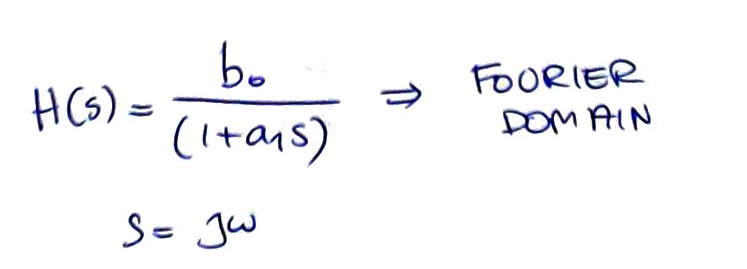 H(s) = b₀ / (1+a₁s) ⇒ FOURIER DOMAIN
s = jω